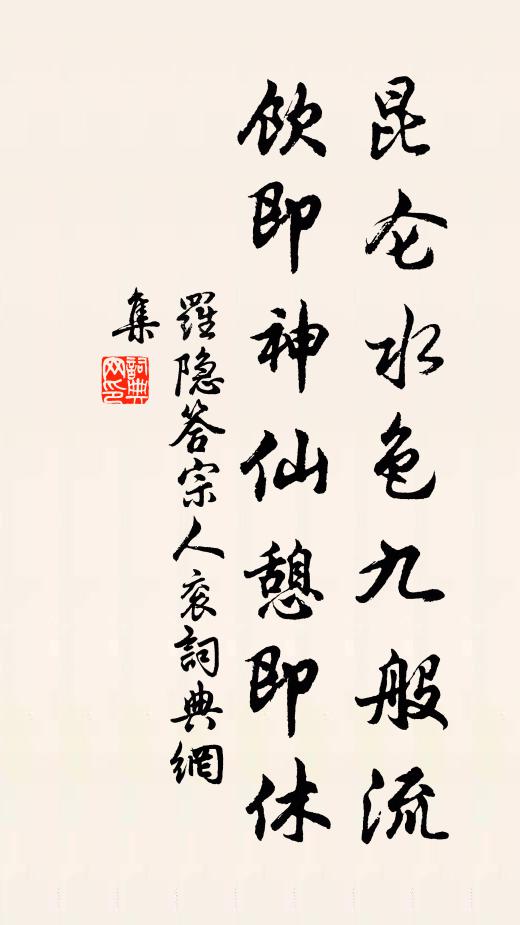 昆仑水色九般流
饮即神仙憩即休
羅隐答宗人衮詞典網
集
詞典网印